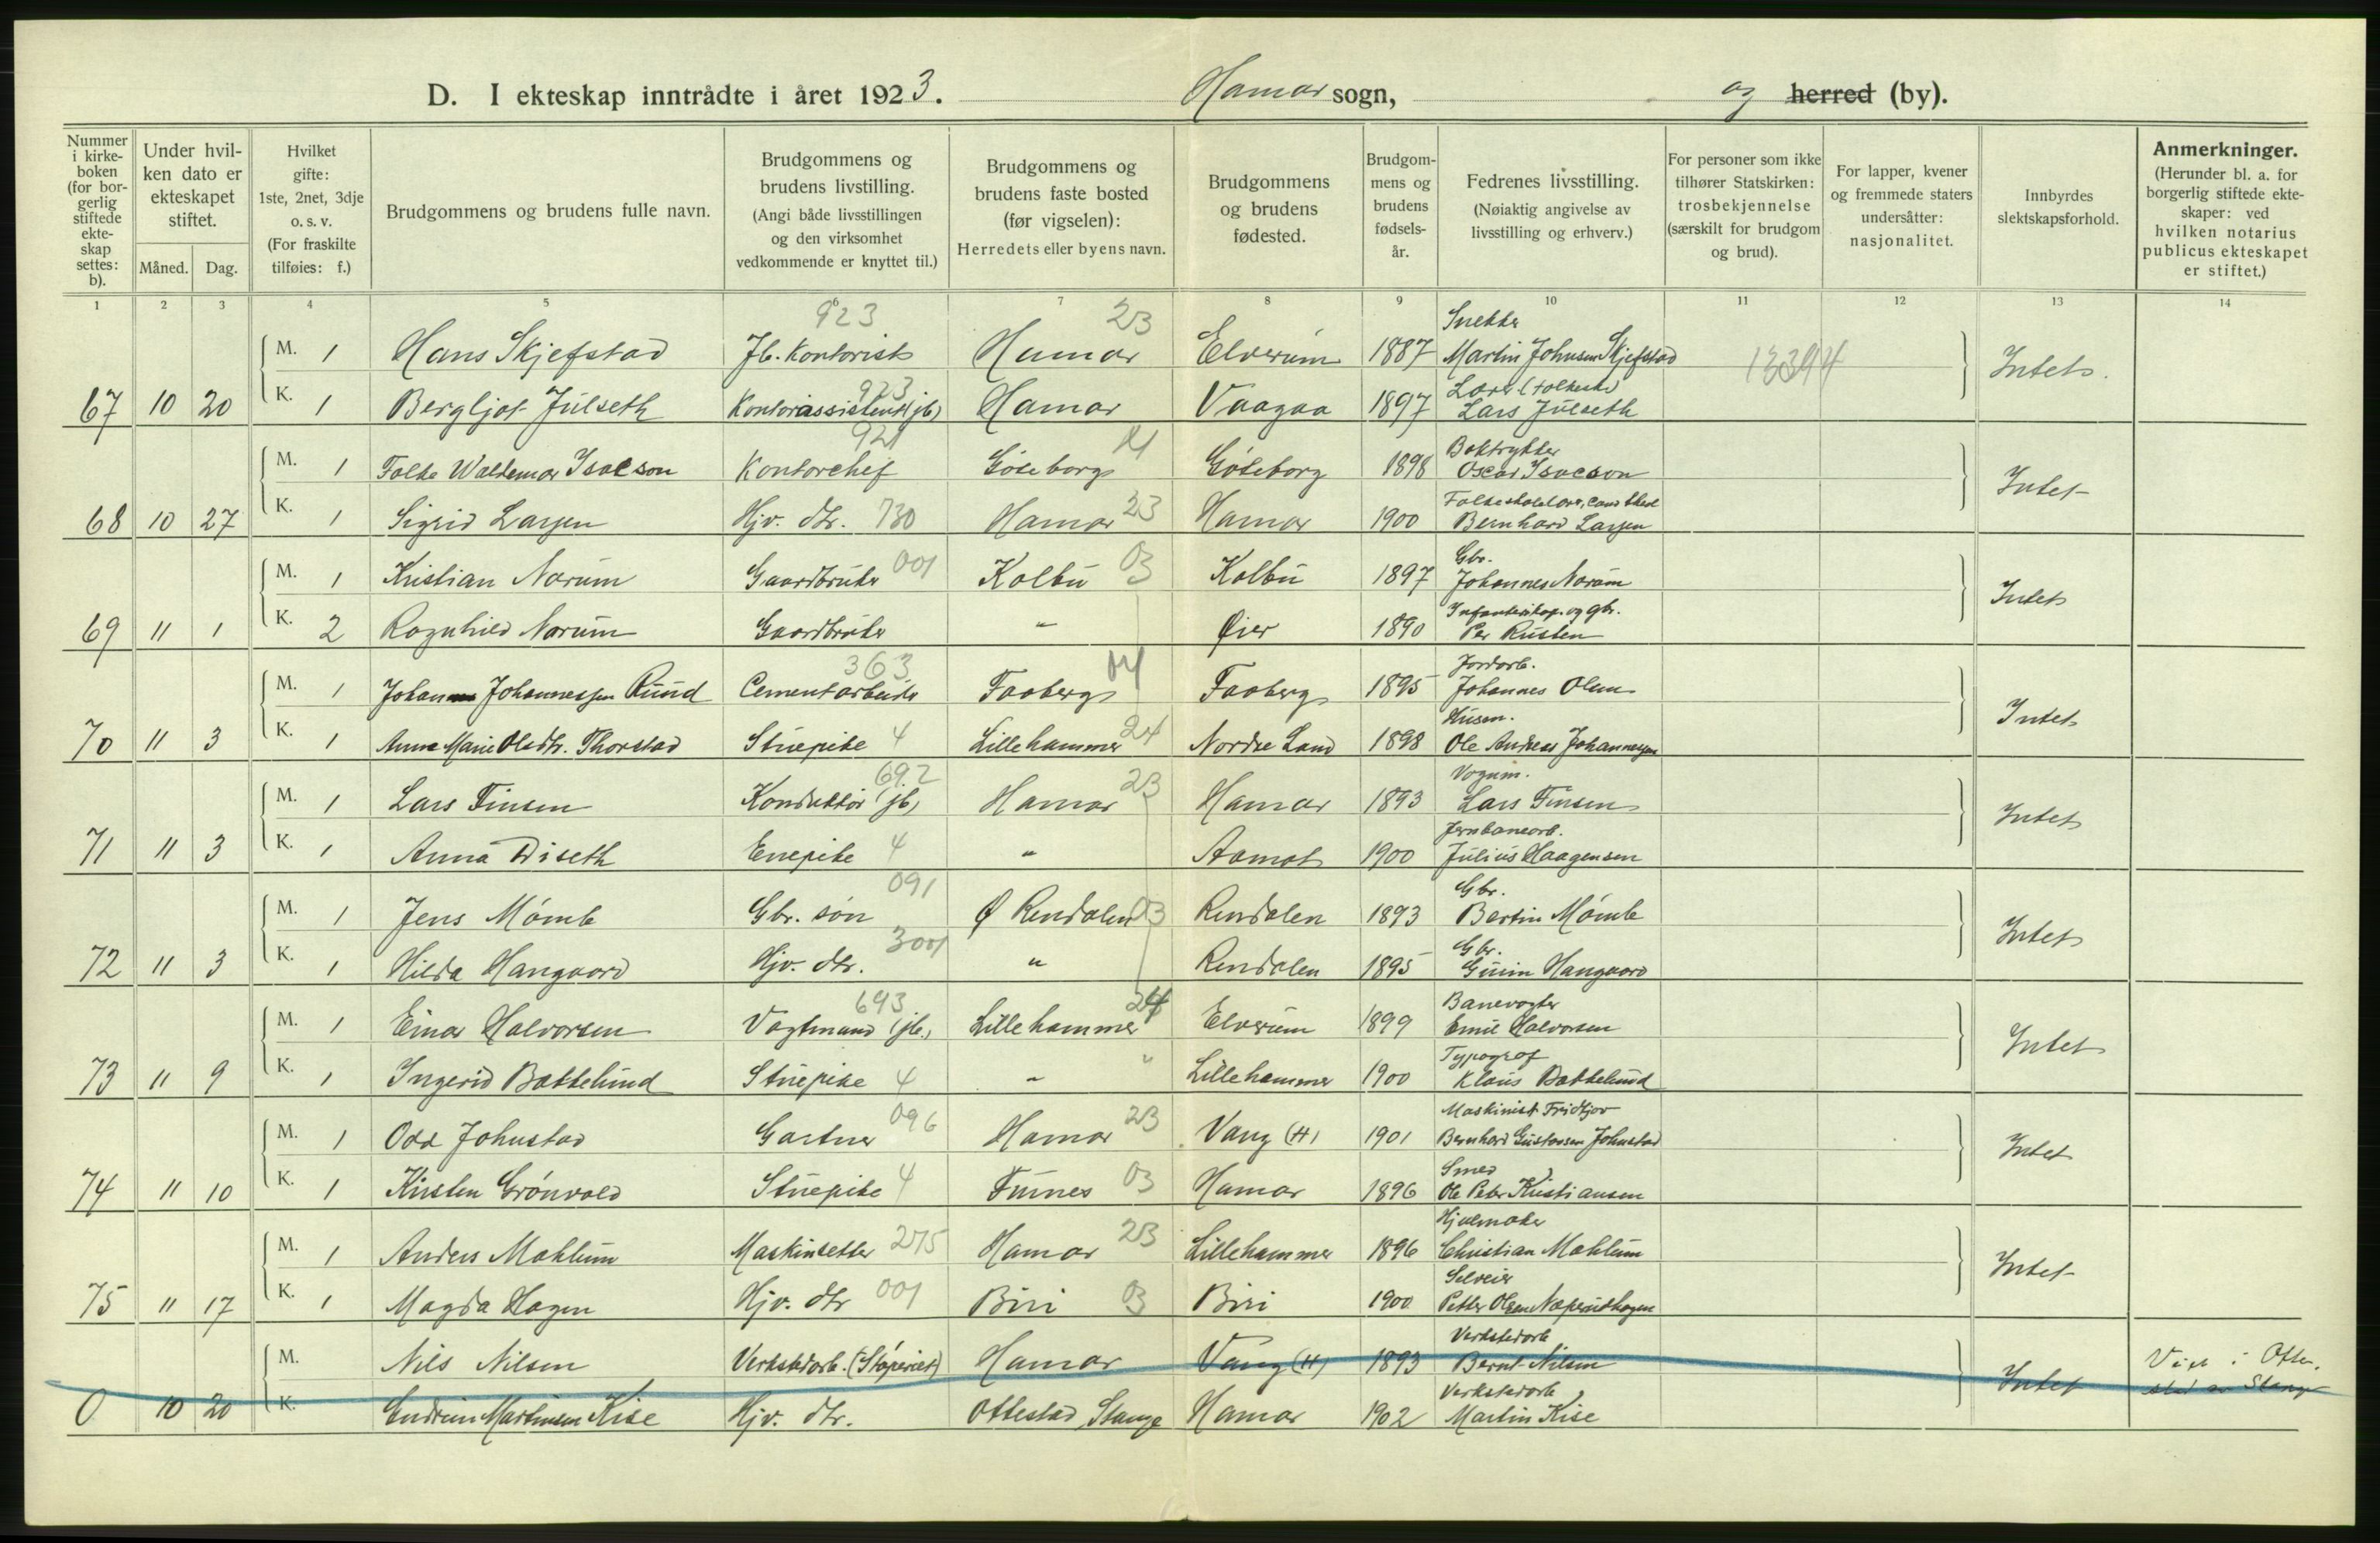 D. I ekteskap inntrådte i året 1923. Hamar sogn, og herred (by).
Nummer i kirke-boken (for bor-gerlig stiftede ekte-skap settes: b).
Under hvil-ken dato er ekteskapet stiftet.
Måned. Dag.
Hvilket gifte: 1ste, 2net, 3dje o. s. v. (For fraskilte tilføies: f.)
Brudgommens og brudens fulle navn.
Brudgommens og brudens livstilling. (Angi både livsstillingen og den virksomhet vedkommende er knyttet til.)
Brudgommens og brudens faste bosted (før vigselen): Herredets eller byens navn.
Brudgommens og brudens fødested.
Brudgom-mens og brudens fødsels-år.
Fedrenes livsstilling. (Nøiaktig angivelse av livsstilling og erhverv.)
For personer som ikke tilhører Statskirken: trosbekjennelse (særskilt for brudgom og brud).
For lapper, kvener og fremmede staters undersåtter: nasjonalitet.
Innbyrdes slektskapsforhold.
Anmerkninger. (Herunder bl. a. for borgerlig stiftede ekte-skaper: ved hvilken notarius publicus ekteskapet er stiftet.)
1 2 3 4 5 6 7 8 9 10 11 12 13 14
923 23 Snekker
M. 1 Hans Skjefstad Jb. Kontorist Hamar Elverum 1887 Martin Johnsen Skjefstad 13394 Intet.
923
67 10 20 K. 1 Bergljot Julseth Kontorassistent (jb) Hamar Vaagaa 1897 Lars Julseth
921 Boktrykker
M. 1 Folke Waldemar Isacson Kontorchef Göteborg Göteborg 1898 Oscar Isacson Intet
68 10 27 K. 1 Sigrid Larsen Hjv. dtr. 730 Hamar 23 Hamar 1900 Bernhard Larsen
Gbr.
M. 1 Kristian Narum Gaardbruker 001 Kolbu 03 Kolbu 1897 Johannes Narum Intet
og gbr.
69 11 1 K. 2 Ragnhild Narum Gaardbruker " Øier 1890 Per Rusten
363 04 Jordarb.
M. 1 Johannessen Ruud Cementarbeider Faaberg Faaberg 1895 Johannes Olsen Intet
Husm.
70 11 3 K. 1 Anna Marie Olsdtr. Thorstad Stuepike 4 Lillehammer 24 Nordre Land 1898 Ole Andreas Johannessen
692 23 Vognm.
M. 1 Lars Finsen Konduktør (jb) Hamar Hamar 1893 Lars Finsen Intet
Jernbanearb.
71 11 3 K. 1 Anna Diseth Enepike 4 " Aamot 1900 Julius Haagensen
091 Gbr.
M. 1 Jens Mømb Gbr. søn Ø Rendalen 03 Rendalen 1893 Bertin Mømb Intet
3001 Gbr.
72 11 3 K. 1 Hilda Hangaard Hjv. dtr. " Rendalen 1895 Hangaard
693 24 Banevogter
M. 1 Einar Halvorsen Vogtmand (jb.) Lillehammer Elverum 1899 Emil Halvorsen Intet
Typograf
73 11 9 K. 1 Ingerid Bakkelund Stuepike 4 " " Lillehammer 1900 Klaus Bakkelund
096 23 Maskinist Fridtjov
M. 1 Odd Johnstad Gartner Hamar Vang (H) 1901 Bernhard Gustavsen Johnstad Intet
Smed
74 11 10 K. 1 Kirsten Grønvold Stuepike 4 Furnes 03 Hamar 1896 Ole Peter Kristiansen
Hjulmaker
M. 1 Anders Mæhlum Maskinsetter 275 Hamar 23 Lillehammer 1896 Christian Mæhlum Intet
Selveier
75 11 17 K. 1 Magda Hagen Hjv. dtr 001 Biri 03 Biri 1900 Petter Olsen
Verkstedarb.
M. Nils Nilsen Verkstedarb. (Støperiet) Hamar Vang (H) 1893 Bernt Nilsen Intet Viet i Otte-
stad av Stange
Verkstedarb.
0 10 20 K. Martinsen Kise Hjv. dtr. Ottestad, Stange Hamar 1902 Martin Kise